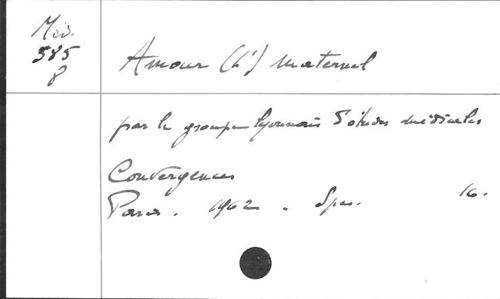 Méd.
585
8
Amour (L') maternel
par le groupe lyonnais d'études médicales
Convergences
Paris. 1962. Spes. 16.